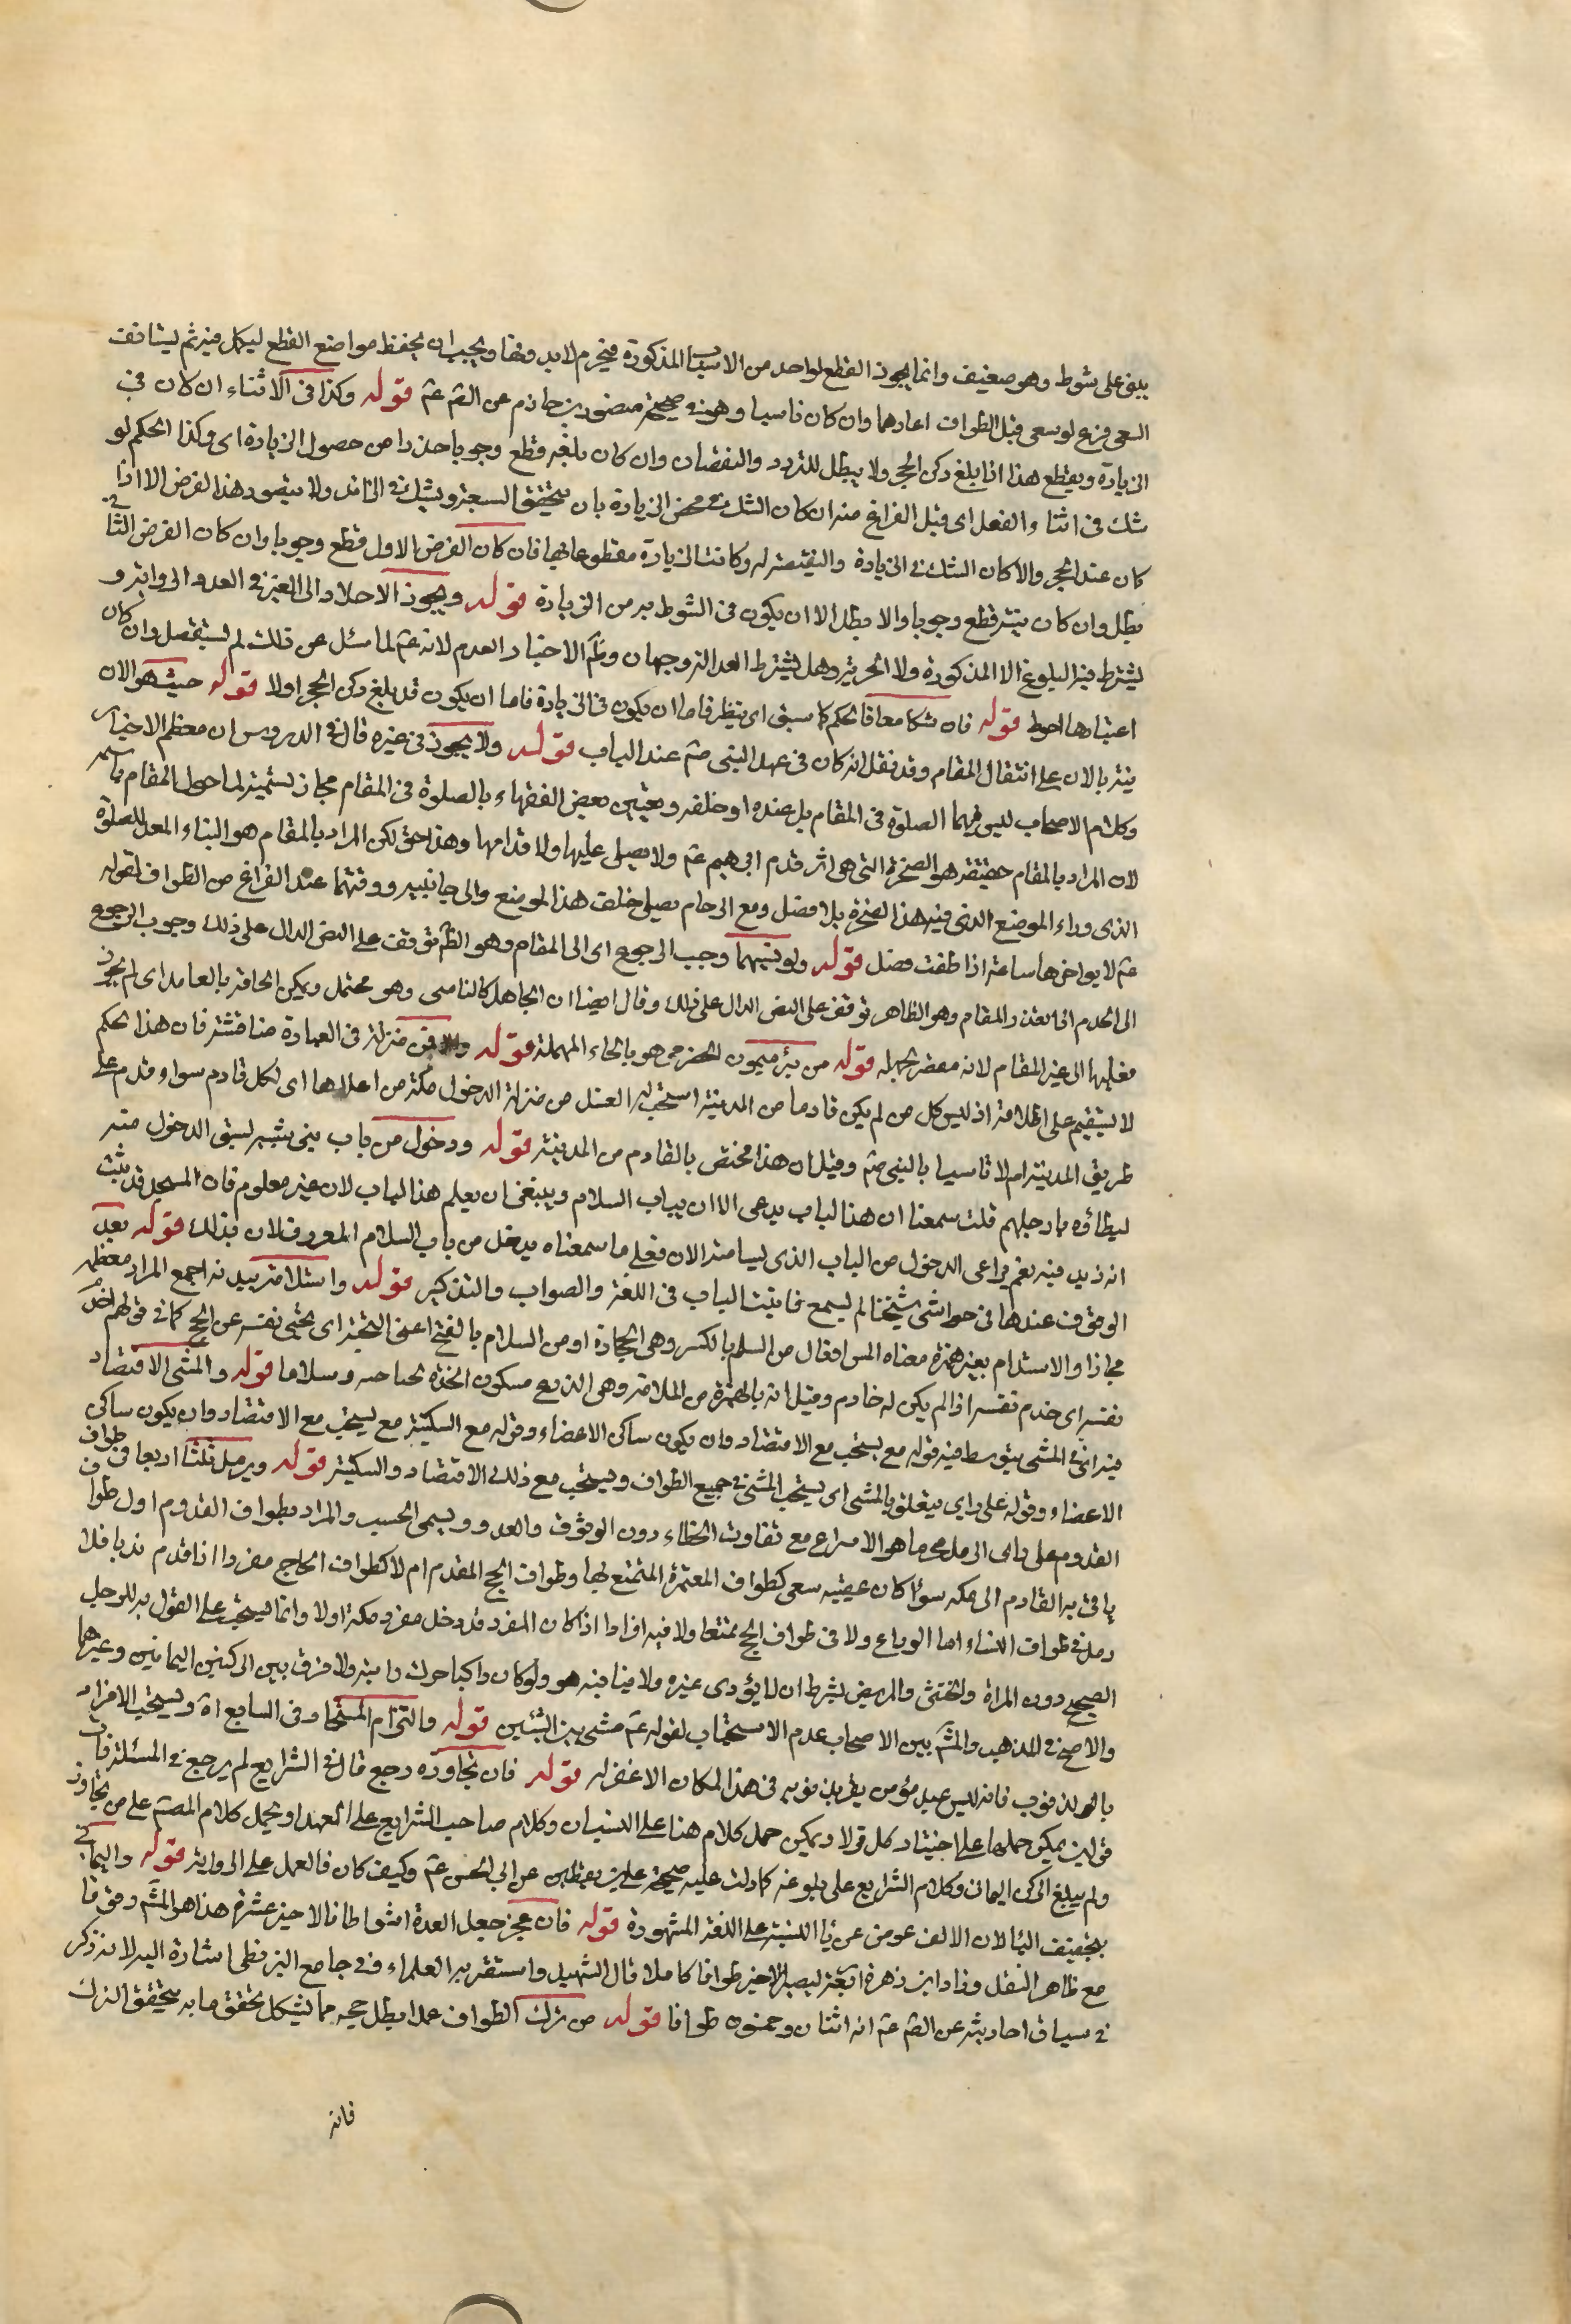 يبنى على شوط وهو ضعيف وانما يجوز القطع لواحد من الاسباب المذكورة فيحرم لا بدونها ويجب ان يحفظ مواضع القطع ليكمل منه ثم ليستانف
السعى فرع لو سعى قبل الطواف اعادهما وان كان ناسيا وهو فى صحيحة منصور بن حازم عن الصّ عّم قوله وكذا فى الاثناء ان كان فى
الزيادة ويقطع هذا اذا بلغ ركن الحجر ولا يبطل للتردد والنقصان وان كان بلغه قطع وجوبا حذرا من حصول الزيادة اى وكذا الحكم لو
شك فى اثناء الفعل اى قبل الفراغ منه ان كان الشك فى محض الزيادة بان يتحقق السبعة ويشك فى الزائد ولا يتصور هذا الفرض الا اذا
كان عند الحجر والا كان الشك فى الزيادة والنقيصة وكانت الزيادة مقطوعا بها فان كان الفرض الاول قطع وجوبا وان كان الفرض الثانى
بطل وان كان قطع وجوبا والا بطل الا ان يكون فى الشوط من الزيادة قوله ويجوز الاخلاد الى الغير فى العدد الرواية و
يشترط فيه البلوغ لا الذكورة ولا الحرية وهل يشترط العدالة وجهان وظّ الاخبار العدم لانه عّم لما سئل عن ذلك لم يستفصل وان كان
اعتبارها احوط قوله فان شكا معا فالحكم كما سبق اى ينظر فاما ان يكون فى الزيادة فاما ان يكون قد بلغ ركن الحجر اولا قوله حيث هو الان
ينبه بالان على انتقال المقام وقد نقل انه كان فى عهد النبى صّم عند الباب قوله ولا يجوز فى غيره قال فى الدروس ان معظم الاخبار
وكلام الاصحاب ليس فيهما الصلوة فى المقام بل عنده او خلفه وتعبير بعض الفقهاء بالصلوة فى المقام مجاز تسمية لما حول المقام باسمه
لان المراد بالمقام حقيقة هو الصخرة التى هى اثر قدم ابرهيم عّم ولا يصلى عليها ولا قدامها وهذا حق لكن المراد بالمقام هو البناء المعد للصلوة
الذى وراء الموضع الذى فيه هذا الصخرة بلا فصل ومع الزحام يصلى خلف هذا الموضع والى جانبيه ووقتهما عند الفراغ من الطواف لقوله
عّم لا يؤخرها ساعة اذا طفت فصل قوله ولو نسيهما وجب الرجوع اى الى المقام وهو الظّ توقف على النص الدال على ذلك وجوب الرجوع
الى الحرم ان تعذر المقام وهو الظاهر توقف على النص الدال على ذلك وقال ايضا ان الجاهل كالناسى وهو محتمل ويمكن الحاقه بالعامد اى لم يجوز
فعلهما الى غير المقام لانه مقصر بجهله قوله من بئر ميمون الحضرمى هو بالحاء المهملة قوله والا فمن منزله فى العبارة مناقشة فان هذا الحكم
لا يستقيم على اطلاقه اذ ليس كل من لم يكن قادما من المدينة استحب له الغسل من منزله الدخول مكة من اعلاها اى لكل قادم سواء قدم على
طريق المدينة ام لا تاسيا بالنبى صّم وقيل ان هذا مختص بالقادم من المدينة قوله ودخول من باب بنى شيبة لسبق الدخول منه
ليطاؤه بارجلهم قلت سمعنا ان هذا الباب يدعى الان بباب السلام وينبغى ان يعلم هذا الباب لان غير معلوم فان المسجد قد ثبت
انه زيد فيه نعم يراعى الدخول من الباب الذى يسامته الان فعلى ما سمعناه يدخل من باب السلام المعروف الان بذلك قوله بعد
الوقوف عندها فى حواشى شيخنا لم يسمع تانيث الباب فى اللغة والصواب والتذكير قوله واستلامه ببدنه اجمع المراد معظمه
مجازا والاستلام بغير همزة معناه المس افتعال من السلم بالكسر وهى الحجارة او من السلام بالفتح اعنى التحية اى يحيى نفسه عن الحجر كما فى قولهم اختدم
نفسه اى خدم نفسه اذا لم يكن له خادم وقيل انه بالهمزة من الملامة وهى الدرع قوله والمشى الاقتصاد
فيه اى فى المشى يتوسط فيه قوله مع يستحب مع الاقتصاد وان يكون ساكن الاعضاء وقوله مع السكينة مع يستحب مع الاقتصاد وان يكون ساكن
الاعضاء وقوله على راى يتعلق بالمشى اى يستحب المشى فى جميع الطواف ويستحب مع ذلك الاقتصاد والسكينة قوله ويرمل ثلثا اربعا فى طواف
القدوم على راى الرمل محركا هو الاسراع مع تقاوت الخطاء دون الوثوب والعدو ويسمى الخبب والمراد بطواف القدوم اول طواف
ياتى به القادم الى مكة سواء كان عقيبه سعى كطواف المعتمرة المتمتع بها وطواف الحج المقدم ام لا كطواف الحاج مفردا اذا قدم ندبا فلا
رمل فى طواف النساء اما الوداع ولا فى طواف الحج تمتعا ولا فيه افرادا اذا كان المفرد قد دخل مفرد مكة اولا وانما يستحب على القول به للرجل
الصحيح دون المراة والخنثى والمريض بشرط ان لا يؤذى غيره ولا ينافيه هو ولو كان راكبا حرك دابته ولا فرق بين الركنين اليمانيين وغيرهما
والاصح فى المذهب والمشّ بين الاصحاب عدم الاستحباب لقوله عّم مشى بين الشيئين قوله والتزام المستجار وفى السابع اه ويستحب الاقرار
بالذنوب فانه ليس عبد مؤمن يقر بذنوبه فى هذا المكان الا غفر له قوله فان تجاوزه رجع قال فى الشرايع لم يرجع فى المسئلة فان
قولين يمكن حملها على اختيار كل قولا ويمكن حمل كلام هنا على النسيان وكلام صاحب الشرايع على العمد او يحمل كلام المصّم على من تجاوز
ولم يبلغ الركن اليمانى وكلام الشرايع على بلوغه كما دلت عليه صحيحة على بن يقطين عن ابى الحسن عّم وكيف كان فالعمل على الرواية قوله واليمانى
بتخفيف اليا لان الالف عوض عن يا النسبة على اللغة المشهورة قوله فان عجز جعل العدة اشواطا فالاخير عشرة هذا هو المشّ وقوفا
مع ظاهر النقل وزاد ابن زهرة اربعة ليصير الاخير طوافا كاملا قال الشهيد واستقر به العلماء وفى جامع البزنطى اشارة اليه لانه ذكر
فى سياق احاديثه عن الصّ عّم انه اثنان وخمسون طوافا قوله من ترك الطواف عمدا بطل حجه مما يشكل تحقق ما به يتحقق الترك
فانه